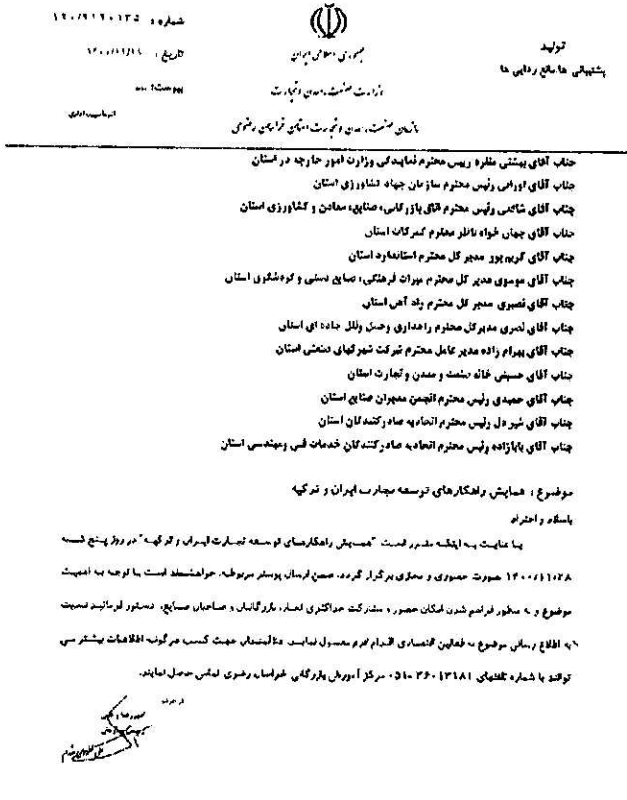 شماره : ۱۲۰/۹۱۲۰۱۳۵
تاریخ : ۱۴۰۰/۱۱/۱۸
پیوست:
جمهوری اسلامی ایران
وزارت صنعت، معدن و تجارت
سازمان صنعت، معدن و تجارت استان خراسان رضوی
تولید
پشتیبانی ها مانع زدایی ها
جناب آقای بهشتی منفرد رییس محترم نمایندگی وزارت امور خارجه در استان
جناب آقای اورانی رئیس محترم سازمان جهاد کشاورزی استان
جناب آقای شافعی رئیس محترم اتاق بازرگانی، صنایع، معادن و کشاورزی استان
جناب آقای جهان خواه ناظر محترم گمرکات استان
جناب آقای کریم پور مدیر کل محترم استاندارد استان
جناب آقای موسوی مدیر کل محترم میراث فرهنگی، صنایع دستی و گردشگری استان
جناب آقای نصیری مدیر کل محترم راه آهن استان
جناب آقای نصری مدیرکل محترم راهداری وحمل ونقل جاده ای استان
جناب آقای بهرام زاده مدیر عامل محترم شرکت شهرکهای صنعتی استان
جناب آقای حسینی خانه صنعت و معدن و تجارت استان
جناب آقای حمیدی رئیس محترم انجمن مدیران صنایع استان
جناب آقای شیر دل رئیس محترم اتحادیه صادرکنندگان استان
جناب آقای بابازاده رئیس محترم اتحادیه صادرکنندگان خدمات فنی ومهندسی استان
موضوع : همایش راهکارهای توسعه تجارت ایران و ترکیه
باسلام و احترام
با عنایت به اینکه مقرر است "همایش راهکارهای توسعه تجارت ایران و ترکیه" در روز پنج شنبه
۱۴۰۰/۱۱/۲۸ صورت حضوری و مجازی برگزار گردد، ضمن ارسال پوستر مربوطه، خواهشمند است با توجه به اهمیت
موضوع و به منظور فراهم شدن امکان حضور و مشارکت حداکثری تجار، بازرگانان و صاحبان صنایع، دستور فرمائید نسبت
به اطلاع رسانی موضوع به فعالین اقتصادی اقدام لازم معمول نمایند. علاقمندان جهت کسب هرگونه اطلاعات بیشتر می
توانند با شماره تلفنهای ۳۶۰۱۳۱۸۱-۰۵۱ مرکز آموزش بازرگانی خراسان رضوی تماس حاصل نمایند.